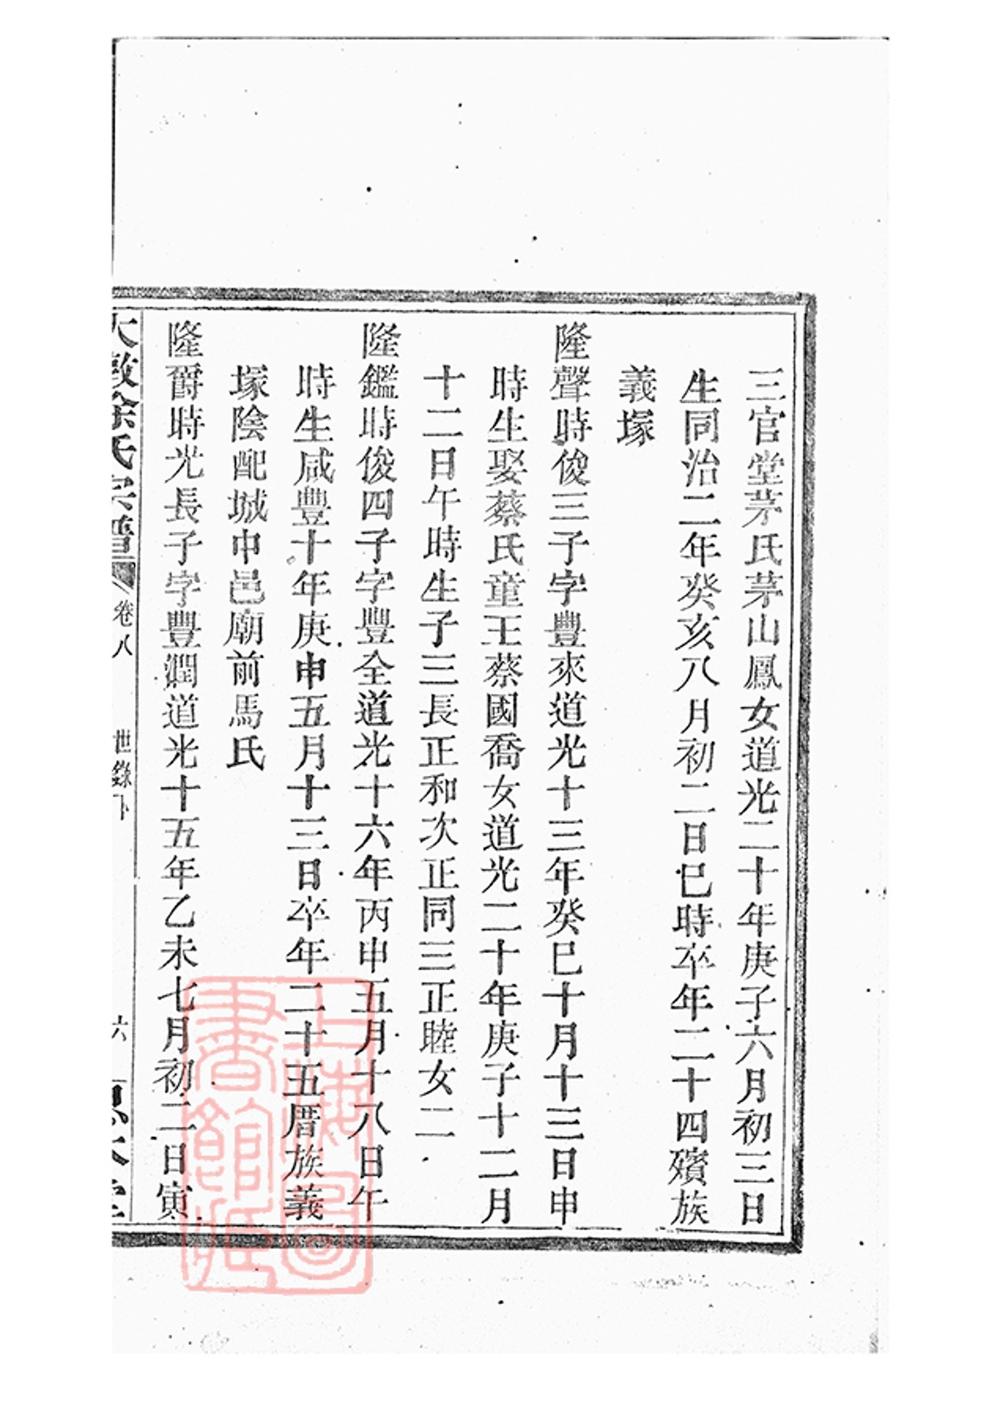 三官堂茅氏茅山鳳女道光二十年庚子六月初三日
生同治二年癸亥八月初二日巳時卒年二十四殯族
義塚
隆聲時俊三子字豐來道光十三年癸巳十月十三日申
時生娶蔡氏童王蔡國喬女道光二十年庚子十二月
十二日午時生子三長正和次正同三正睦女二
隆鑑時俊四子字豐全道光十六年丙申五月十八日午
時生咸豐十年庚申五月十三日卒年二十五厝族義
塚陰配城中邑廟前馬氏
隆爵時光長子字豐潤道光十五年乙未七月初二日寅
大墩徐氏宗譜 卷八 世錄下 六
上海圖書館藏